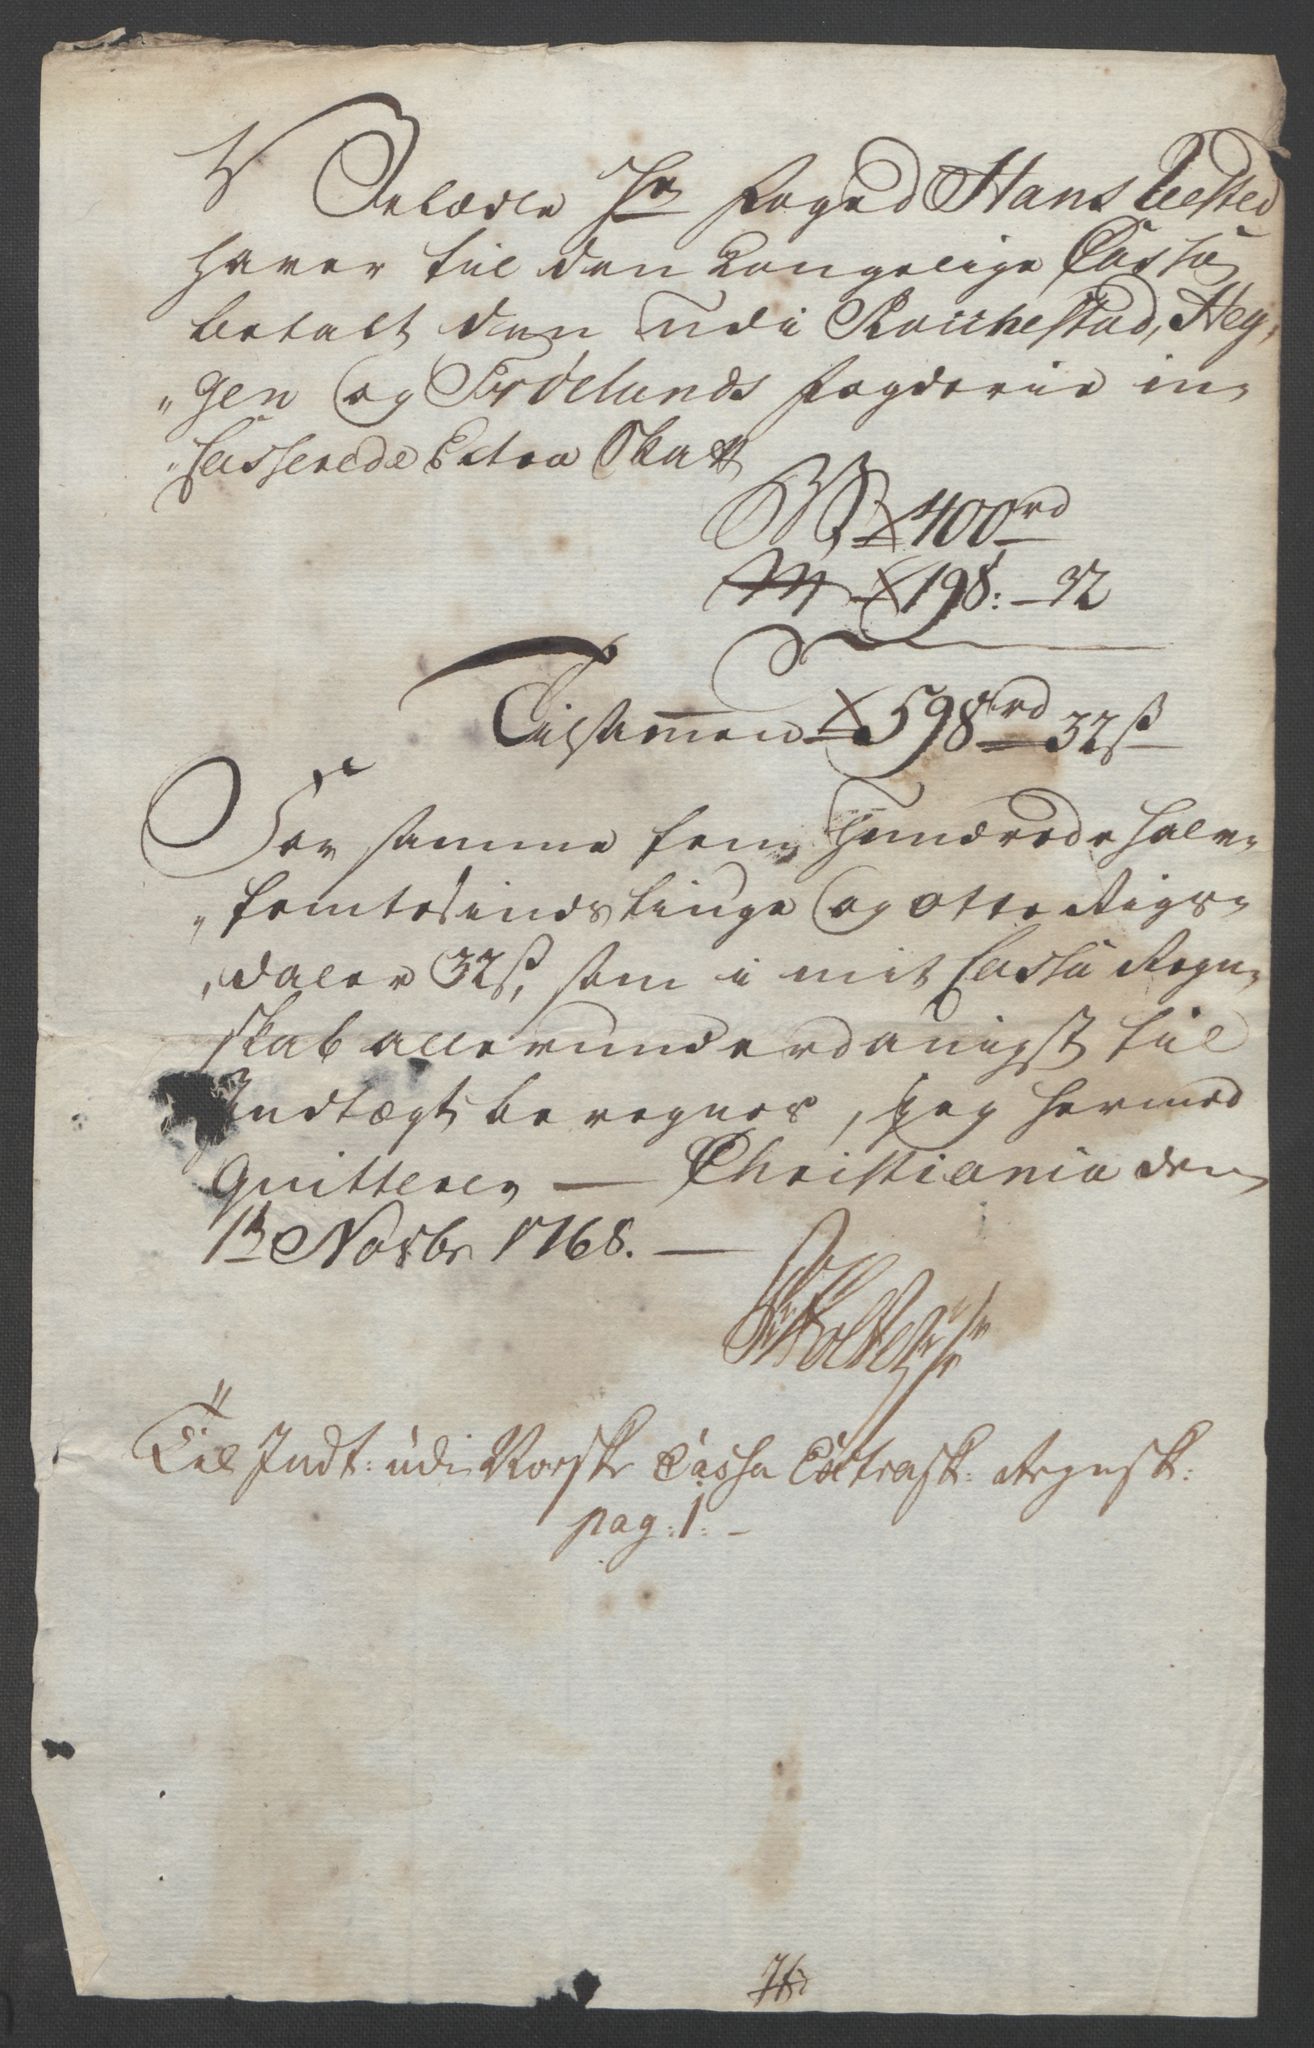 Velædle Hr Foged Hans Tiested
haver til den Kongelige Cassa
betalt den udi Rackestad, Heg,
"gen og Frølands fogderie in,
"casserede Extra Skatt
400rd
198: - 32
Tilsammen 598rd 32ß
For samme fem Hundrede halv,
"femtesindstiuge og otte Rigs,
,daler 32ß, som i mit Cassa Regn,
skab allerunderdanigst til
Indtægt beregnes, jeg hermed
Quitterer — Christiania den
1te Novbr 1768. —
Til Indt: udi Norske Cassa Extrask: Regnsk:
pag: 1: -